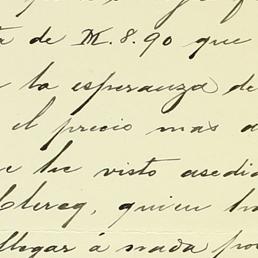 de M. 8.90 que
la esperanza de
el precio mas
he visto asedia
Clercq, quien ha
llegar á nada por